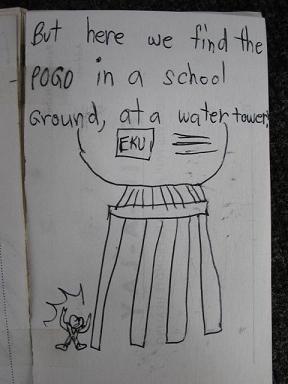 But here we find the
POGO in a school
Ground, at a water tower,
EKU